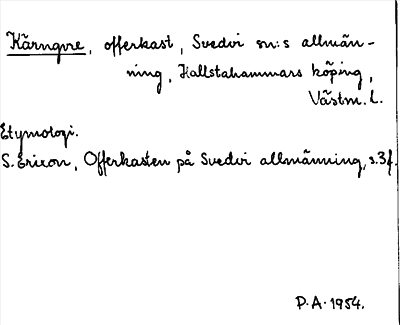 Kärngvre, offerkast, Svedvi sn:s allmän-
ning, Hallstahammars köping,
Västm. l.
Etymologi.
S. Erixon, Offerkasten på Svedvi allmänning, s. 3 f.
P. A. 1954.